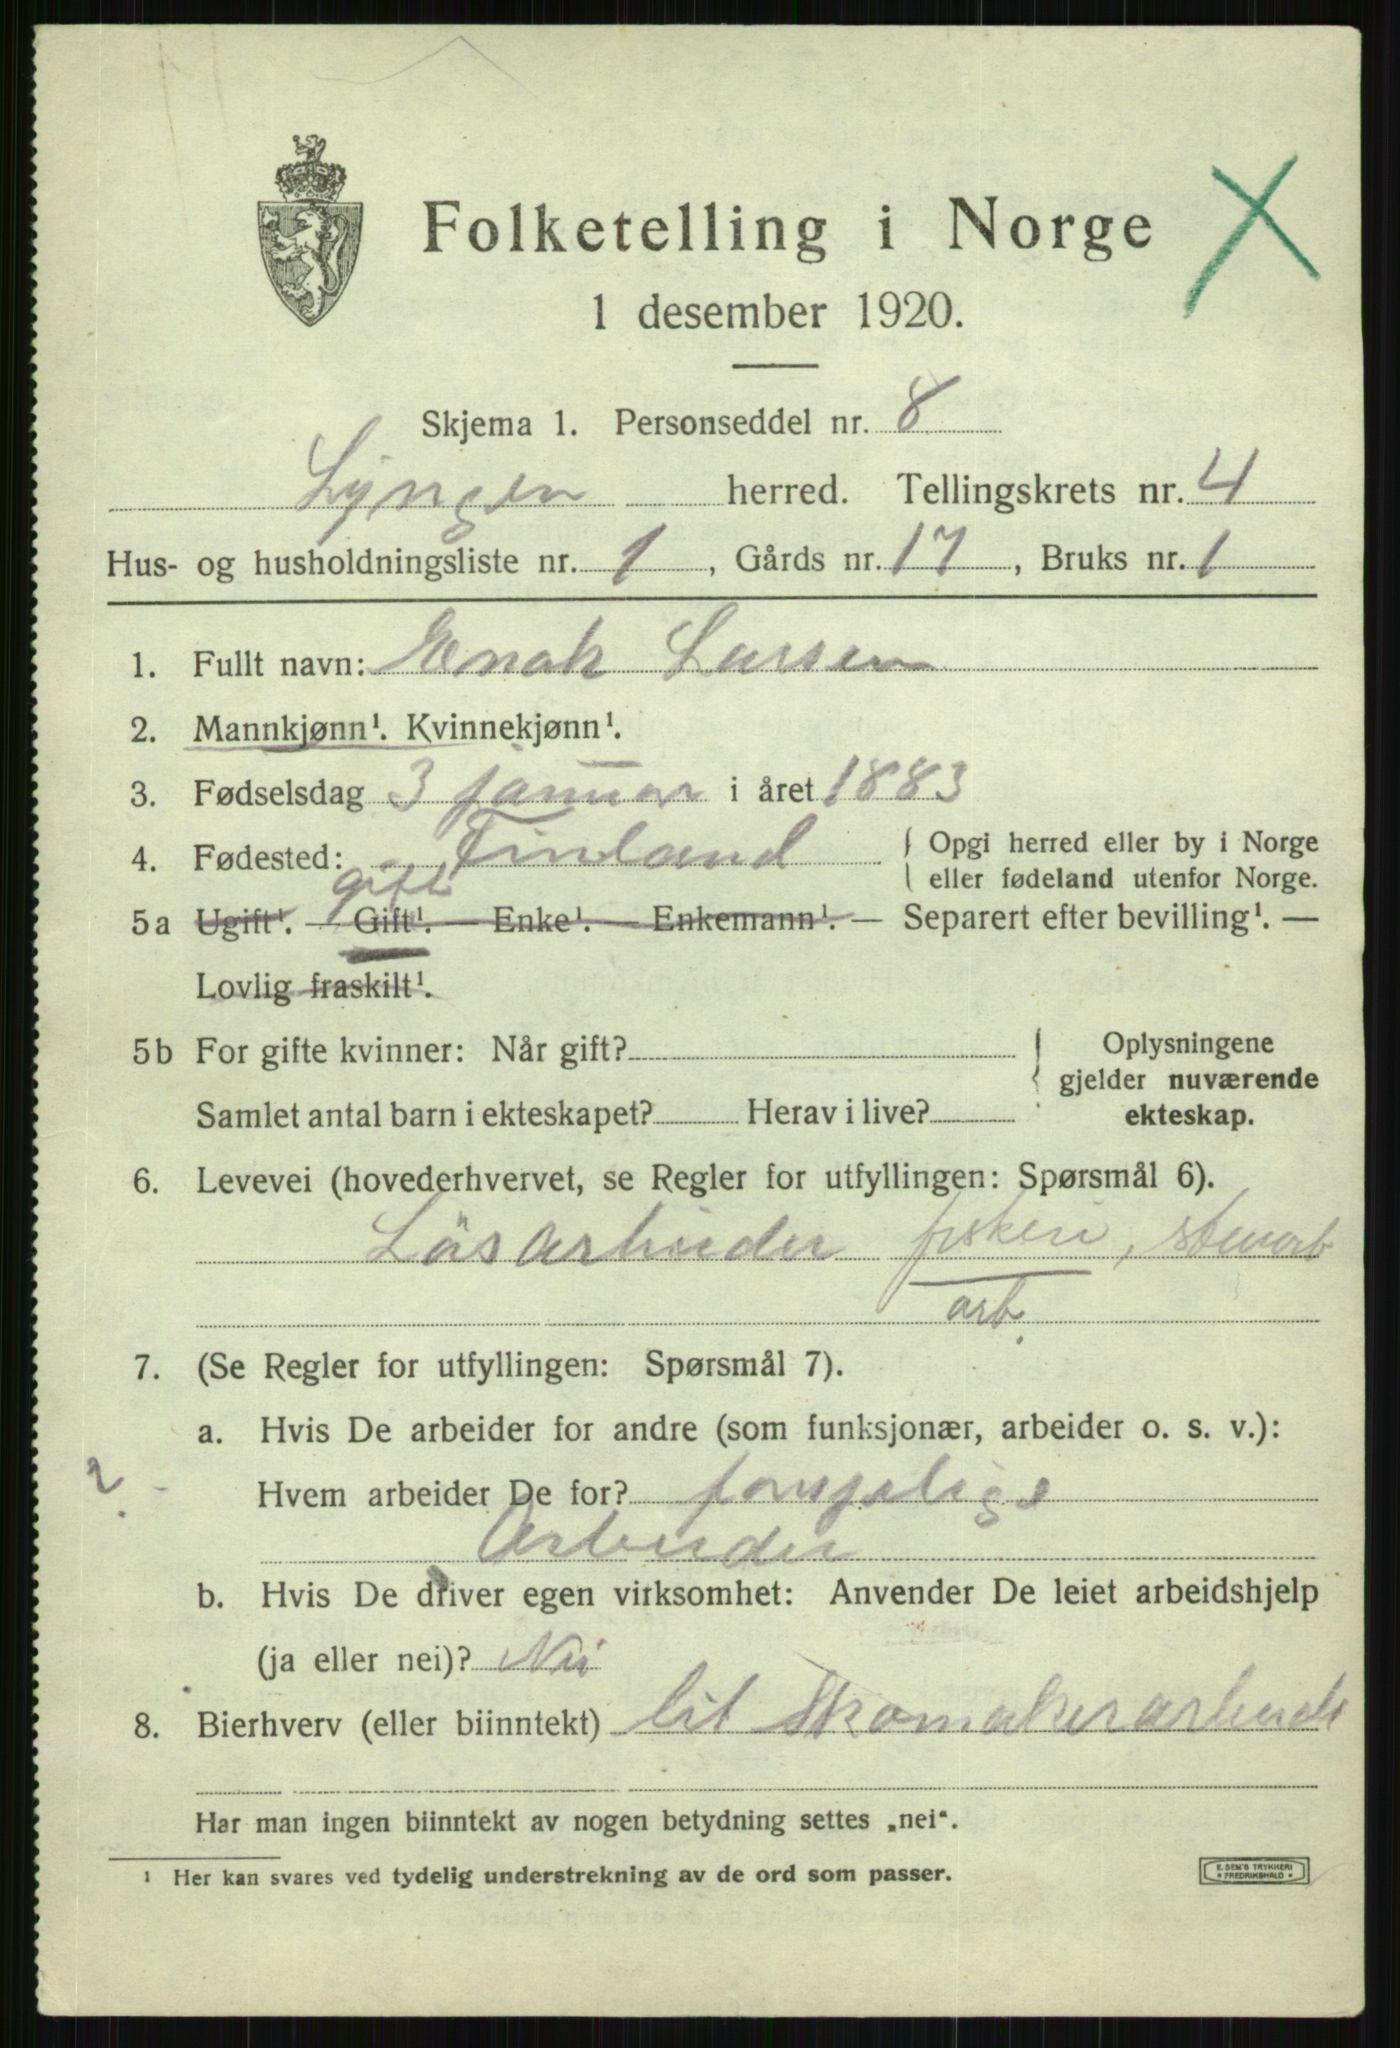 Folketelling i Norge
1 desember 1920.
Skjema 1. Personseddel nr. 8
Lyngen herred. Tellingskrets nr. 4
Hus- og husholdningsliste nr. 1, Gårds nr. 17, Bruks nr. 1
1. Fullt navn: Enok Larsen
2. Mannkjønn¹. Kvinnekjønn¹.
3. Fødselsdag 3 januar i året 1883
4. Fødested: Finland { Opgi herred eller by i Norge
eller fødeland utenfor Norge.
gift
5a Ugift¹. — Gift¹. — Enke¹. — Enkemann¹. — Separert efter bevilling¹. —
Lovlig fraskilt¹.
5b For gifte kvinner: Når gift? { Oplysningene
gjelder nuværende
Samlet antal barn i ekteskapet? Herav i live? ekteskap.
6. Levevei (hovederhvervet, se Regler for utfyllingen: Spørsmål 6).
Lösarbeider fiskeri,
arb.
7. (Se Regler for utfyllingen: Spørsmål 7).
a. Hvis De arbeider for andre (som funksjonær, arbeider o. s. v.):
2 Hvem arbeider De for?
Arbeider
b. Hvis De driver egen virksomhet: Anvender De leiet arbeidshjelp
(ja eller nei)? Nei
8. Bierhverv (eller biinntekt) lit Skomakerarbeide
Har man ingen biinntekt av nogen betydning settes „nei“.
¹ Her kan svares ved tydelig understrekning av de ord som passer.
E. SEM'S TRYKKERI
* FREDRIKSHALD *